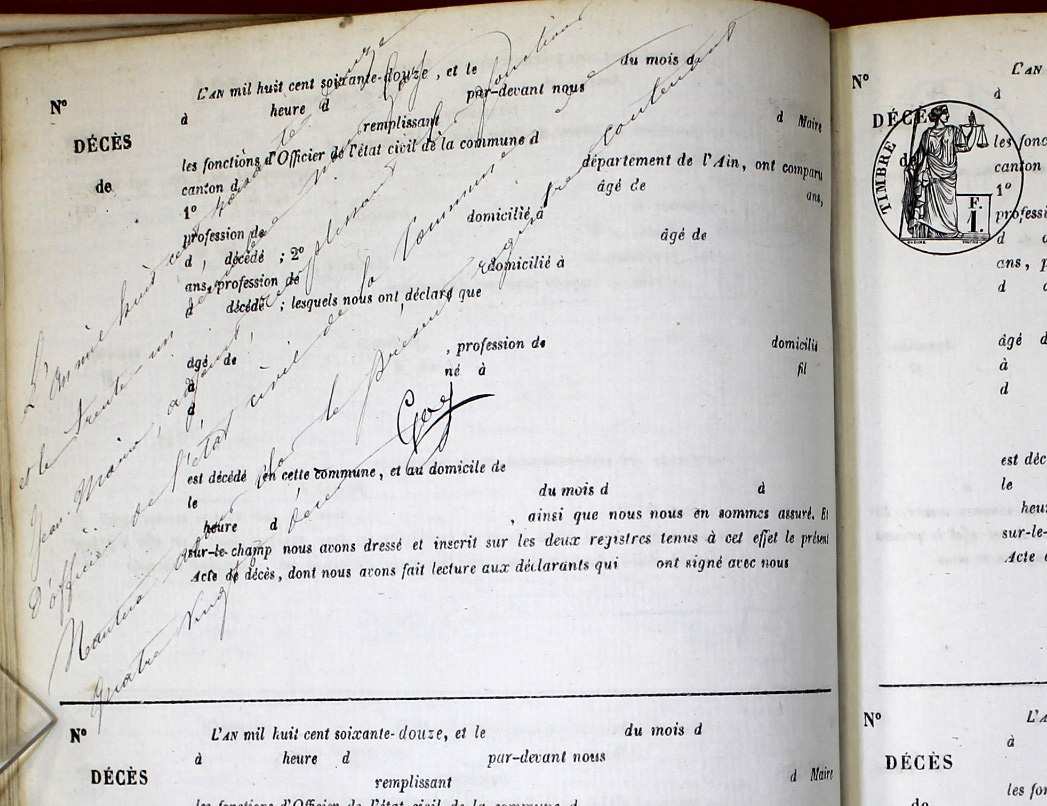 N° L'AN mil huit cent soixante-douze, et le du mois d
à heure d par-devant nous
DÉCÈS remplissant d Maire
les fonctions d'Officier de l'état civil de la commune d
de canton d département de l'Ain, ont comparu
1° âgé de ans,
profession de domicilié à
d , décédé ; 2° âgé de
ans, profession de domicilié à
d décédé ; lesquels nous ont déclaré que
âgé de , profession de domicilié
à né à fil
d
est décédé en cette commune, et au domicile de
le du mois d à
heure d , ainsi que nous nous en sommes assuré. Et
sur-le-champ nous avons dressé et inscrit sur les deux registres tenus à cet effet le présent
Acte de décès, dont nous avons fait lecture aux déclarants qui ont signé avec nous
L'An mil huit cent soixante
et le trente un
Jean Marie adjoint remplissant fonctions
d'officier de l'état civil de la Commune
clos le présent registre contenant
quatre vingt
Goy
N° L'AN mil huit cent soixante-douze, et le du mois d
à heure d par-devant nous
DÉCÈS remplissant d Maire
les fonctions d'Officier de l'état civil de la commune d
N° L'AN
à
DÉCÈS
les fonc
de canton
TIMBRE
F.
1.
1°
profess
d
ans, p
d
âgé d
à
d
est déc
le
heur
sur-le-
Acte d
N° L'A
à
DÉCÈS
les fon
de